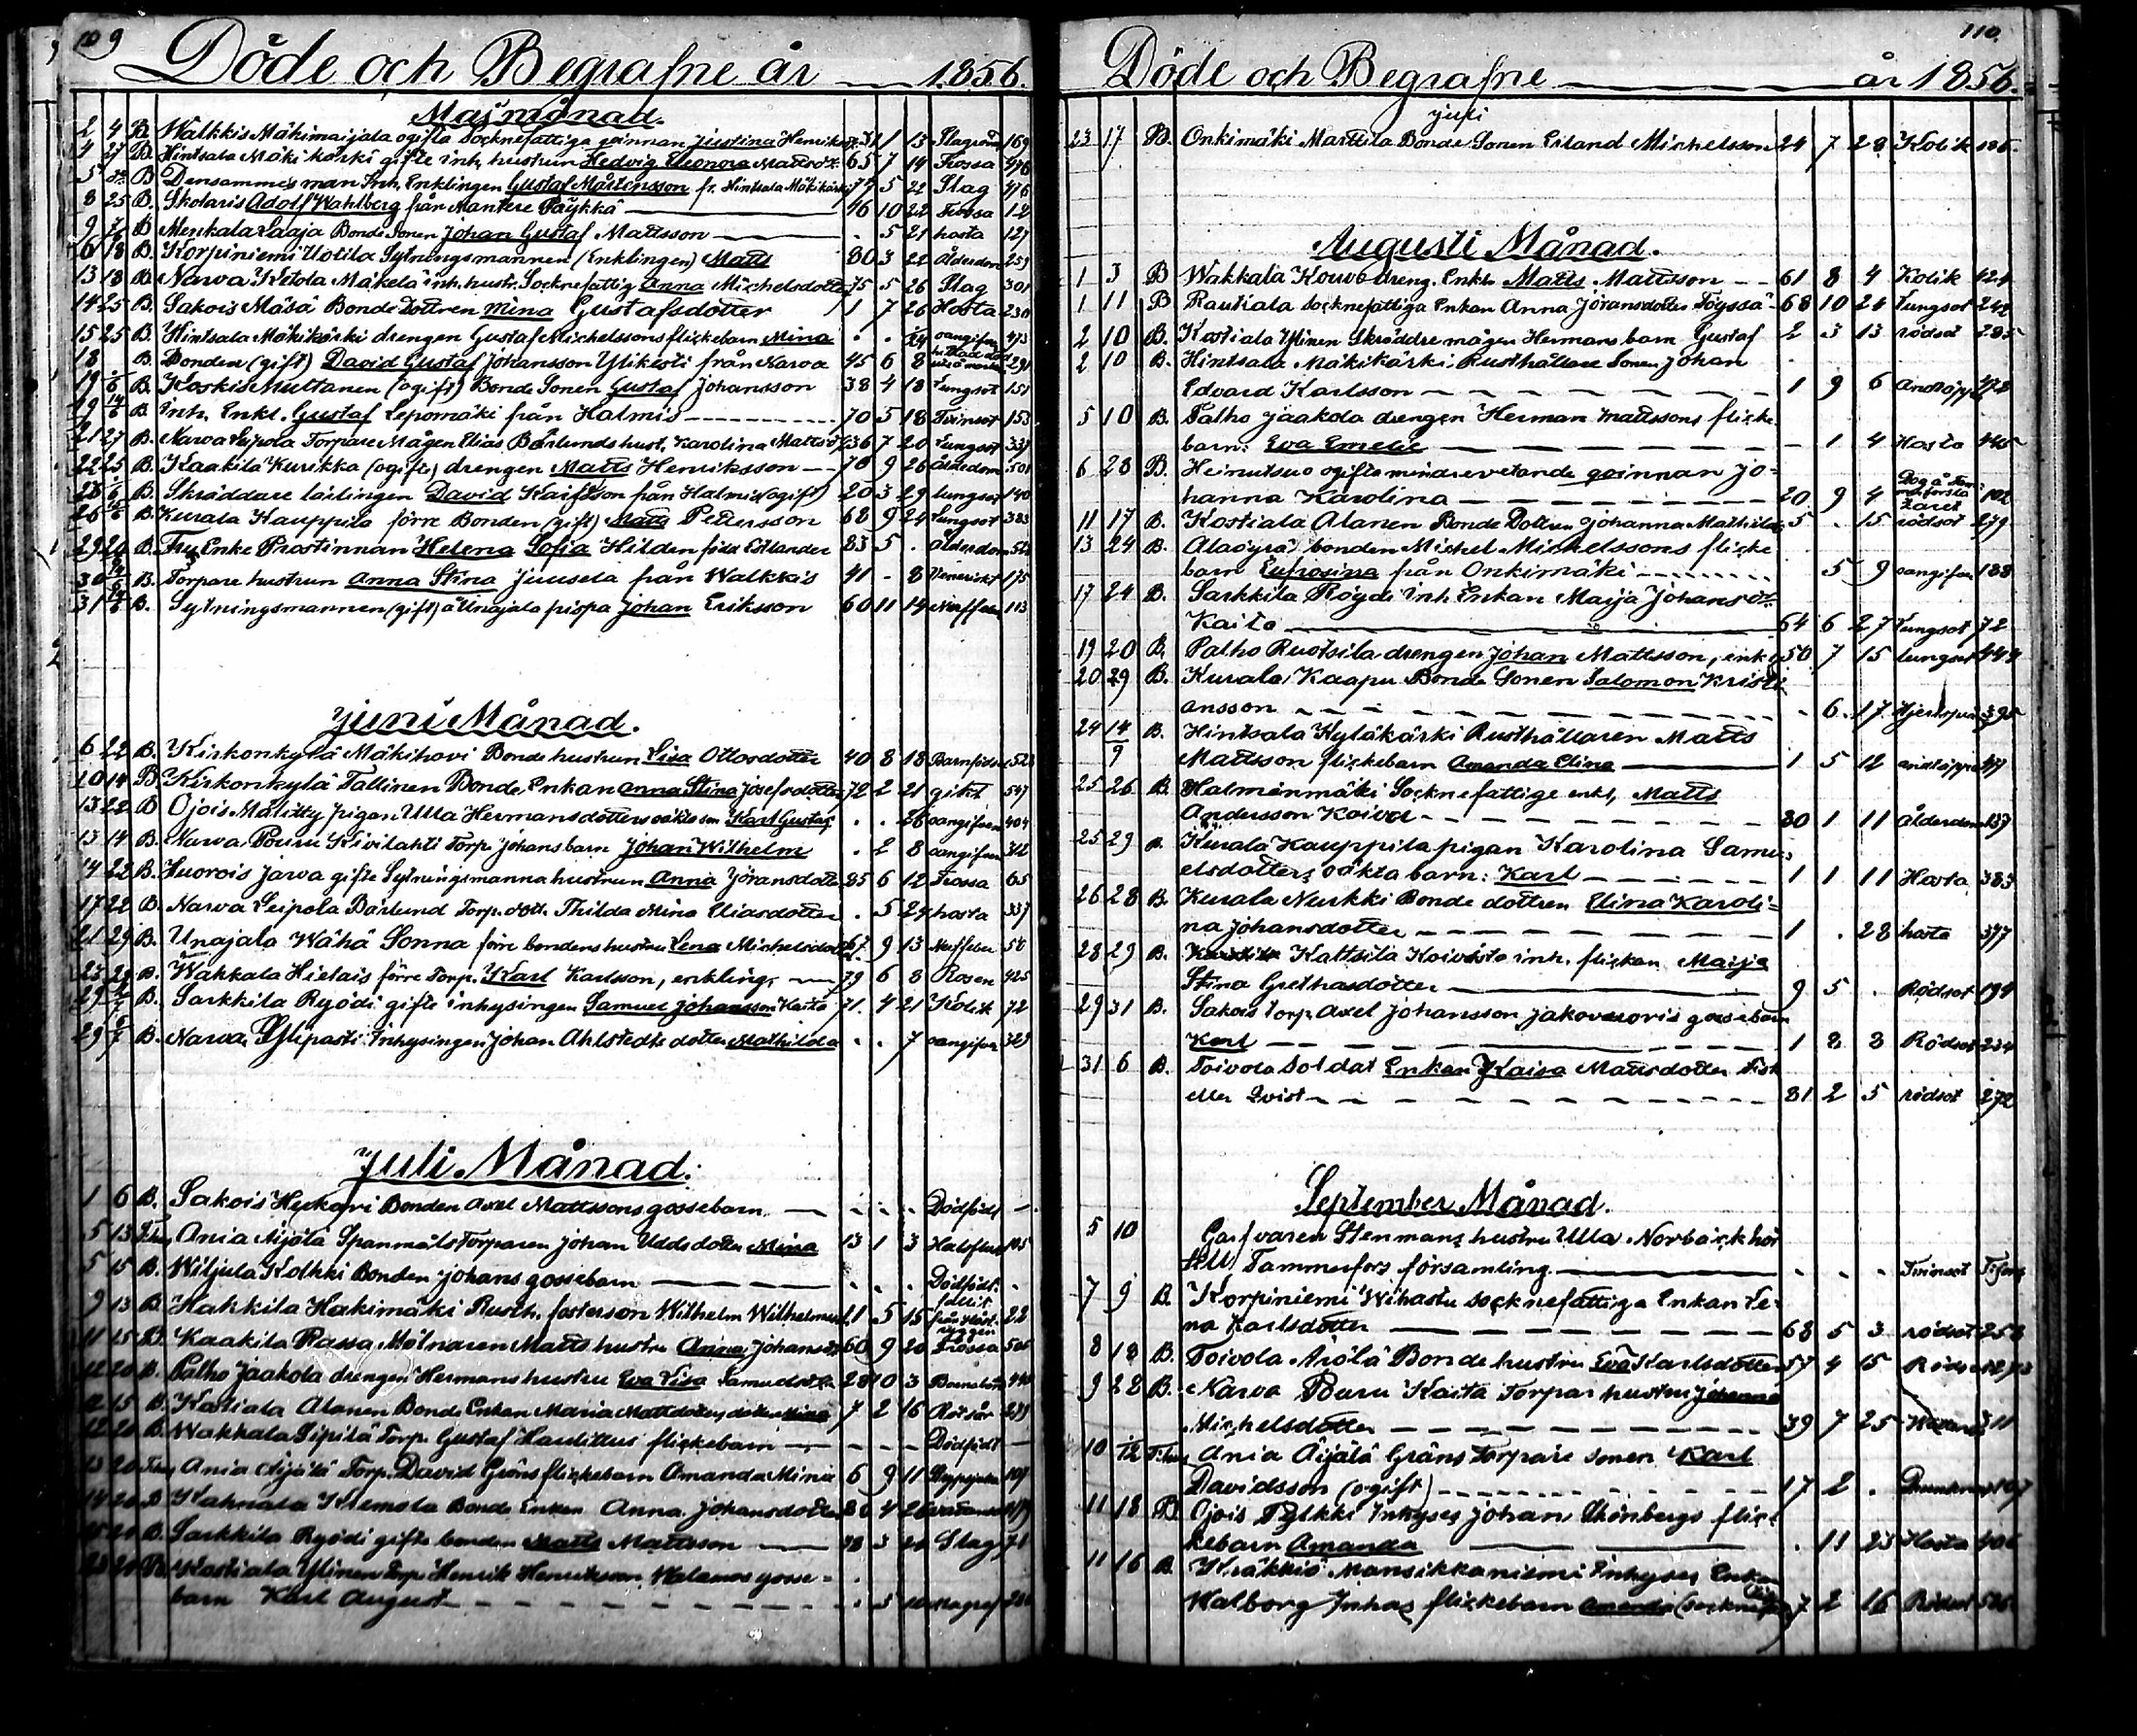 109
Döde och Begrafne år 1856.
Maj månad.
2 4 B. Walkkis Mäkimaijala ogifta Socknefattiga qvinnan Justina Henriksdr 1 13 Slag 169
4 27 B. Hintsala Mäkikärki gifte inh. hustrun Hedvig Eleonora Mattsdr 65 7 14 Frossa 476
5 B Densammes man Inh. Enklingen Gustaf Mårtensson fr. Hintsala Mäkikärki 77 5 22 Slag 476
8 25 B. Skolaris Adolf Wahlberg från Mantere Päykkä 46 10 22 Frossa 12
9 B Menkala Laaja Bonde Sonen Johan Gustaf Mattsson . 5 21 hosta 127
6 18 B. Korpiniemi Uotila Sytningsmannen (Enklingen) Matts 80 3 22 Ålderdom 259
13 18 B. Narwa Ketola Mäkelä inh. hustr. Socknefattig Anna Michelsdotter 75 5 26 Slag 301
14 25 B. Sakois Mäsä Bonde Dottren Mina Gustafsdotter 1 7 26 Hosta 230
15 25 B. Hintsala Mäkikärki drengen Gustaf Michelssons flickebarn Mina . . 24 oangifven 473
18 B. Bonden (gift) David Gustaf Johansson Ylikesti från Narwa 45 6 8 291
19 B. Koskis Multanen (ogift) Bonde Sonen Gustaf Johansson 38 4 18 Lungsot 151
19 14/6 B Inh. Enkl. Gustaf Lepomäki från Halmis 70 5 18 Tvinsot 153
21 27 B. Narwa Leipola Torpare Mågen Elias Bärlunds hust. Karolina Mattsdr 36 7 20 Lungsot 337
22 25 B. Kaakila Kurikka (ogifte) drengen Matts Henriksson 78 9 26 ålderdom 501
B. Skräddare lärlingen David Kaifsson från Halmis (ogift) 20 3 29 lungsot 140
26 B. Kurala Kauppila förre Bonden (gift) Matts Pettersson 68 9 24 Lungsot 383
29 B. Fru Enke Prostinnan Helena Sofia Hilden född Estlander 83 5 . ålderdom
30 B. Torpare hustrun Anna Stina Juusela från Walkkis 41 - 8 175
31 B. Sytningsmannen (gift) å Unajala pispa Johan Eriksson 60 11 14 Nerffeber 113
Juni Månad.
6 22 B. Kirkonkylä Mäkihovi Bonde hustrun Lisa Ottosdotter 40 8 18 Barnsbörd
10 14 B. Kirkonkylä Tallinen Bonde Enkan Anna Stina Josefsdotter 72 2 21 gikt 547
13 22 B Ojois Målitty pigan Ulla Hermansdotters oäkta son Karl Gustaf . . 26 oangifven 404
13 14 B. Narwa Pouru Kivilahti Torp. Johans barn Johan Wilhelm . 2 8 oangifven 312
14 22 B. Huorois Jarva gifte Sytningsmanna hustrun Anna Jöransdotter 85 6 12 Frossa 65
17 22 B. Narwa Leipola Bärlund Torp. dott. Thilda Mina Eliasdotter . 5 24 hosta 337
21 29 B. Unajala Wähä Sonna förre bondens hustru Lena Michelsdotter 67 9 13 Nerffeber
23 29 B. Wahkala Hietais förre Torp. Karl Karlsson, enkling 79 6 8 Rosen 425
29 B. Sarkkila Ryödi gifte inhysingen Samuel Johansson Kaita 71 4 21 Kolik 72
29 6/7 B. Narwa Ylipasti Inhysingen Johan Ahlstedts dotter Mathilda . . 7 oangifven 329
Juli Månad.
1 6 B. Sakois Heikari Bonden Axel Mattssons gossebarn Dödfödt
5 13 Ania Äijälä Spanmåls Torparen Johan Udds dotter Mina 13 1 3 Halsfluss 105
5 15 B. Wiljula Kolkki Bonden Johans gossebarn Dödfödt.
9 13 B. Hakkila Hakimäki Rusth. fosterson Wilhelm Wilhelmsson 11 5 15 fallit från hästryggen 22
11 15 B. Kaakila Rassa Mölnaren Matts hustru Anna Johansdr 60 9 20 Frossa
12 20 B. Palho Jaakola drengen Hermans hustru Eva Lisa Samuelsdotter 28 10 3
15 B. Kostiala Alanen Bonde Enkan Maria Mattsdotters dotter Mina 7 2 16 Rötsår 279
12 20 B. Wakkala Pipilä Torp. Gustaf flickebarn Dödfödt
13 20 Ania Äijälä Torp. David Gröns flickebarn Amanda Mina 6 9 11 107
14 20 B Kahnala Klemola Bonde Enkan Anna Johansdotter 4 26
20 B. Sarkkila Ryödi gifte bonden Matts Mattsson 48 3 Slag 71
B. Kostiala Ylinen Torp. Henrik Henriksson Walamos gosse-
barn Karl August . 5
110.
Döde och Begrafne år 1856.
juli
23 17 B. Onkimäki Marttila Bonde Sonen Erland Michelsson 24 7 28 Kolik 186
Augusti Månad.
1 3 B Wakkala Kouvo dreng. Enkl. Matts Mattsson 61 8 4 Kolik 424
1 11 B Rautiala Socknefattiga Enkan Anna Jöransdotter Töyssä 68 10 24 Lungsot 242
2 10 B. Kostiala Ylinen Skräddremågen Hermans barn Gustaf 2 3 13 rödsot 285
2 10 B. Hintsala Mäkikärki Rusthållare Sonen Johan
Edvard Karlsson 1 9 6 Andtäppa 472
5 10 B. Palho Jaakola drengen Herman Mattssons flicke
barn: Eva Emelie - 1 4 Hosta 445
6 28 B. Heinutsuo ogifte mindrevetande qvinnan Jo-
hanna Karolina 20 9 4 102
11 17 B. Kostiala Alanen Bonde Dottren Johanna Mathilda 5 . 15 rödsot 279
13 24 B. Alaöyrä bonden Michel Michelssons flicke
barn Eufrosina från Onkimäki 5 9 oangifven 188
17 24 B. Sarkkila Röydi Inh. Enkan Maija Johansdr
Kaita 64 6 27 Lungsot 72
19 20 B. Palho Ruotsila drengen Johan Mattsson, enkl. 50 7 15 lungsot 444
20 29 B. Kurala Kaapu Bonde Sonen Salomon Kristi-
ansson - 6 17 395
24 14/9 B. Hintsala Kyläkärki Rusthållaren Matts
Mattsson flickebarn Amanda Elina 1 5 12 andtäppa
25 26 B. Halmenmäki Socknefattige enkl. Matts
Andersson Koiva 80 1 11 ålderdom 137
25 29 B. Kurala Kauppila pigan Karolina Samu-
elsdotters oäkta barn: Karl 1 1 11 Hosta 383
26 28 B. Kurala Nurkki Bonde dottren Elina Karoli-
na Johansdotter 1 . 28 hosta 377
28 29 B. Kattsila Koivisto inh. flickan Maija
Stina Grethasdotter 9 5 . Rödsot 194
29 31 B. Sakois torp. Axel Johansson Jakovuoris gossebarn
Karl 1 8 8 Rödsot 234
31 6 B. Toivola Soldat Enkan Kaisa Mattsdotter Fisk
eller Qvist 81 2 5 rödsot 272
September Månad.
5 10 Garfvaren Stenmans hustru Ulla Norbäck hör
till Tammerfors församling - - - Tvinsot
7 9 B. Korpiniemi Wihastu socknefattiga Enkan Le-
na Karlsdotter 68 5 3 rödsot 258
8 18 B. Toivola Arölä Bonde hustru Eva Karlsdotter 57 4 15 Rödsot 273
9 28 B. Narva Puru Kaita Torpar hustru Johanna
Michelsdotter 39 7 25 311
10 12 Ania Äijälä Gröns Torpare Sonen Karl
Davidsson (ogift) 17 2 . 107
11 18 B Ojois Pylkki Inhyses Johan Thönbergs flic-
kebarn Amanda . 11 23 Hosta 406
11 16 B. Kräkkiö Mansikkaniemi Inhyses Enkan
Walborg Juhas flickebarn (socknefattig) 7 2 16 Rödsot